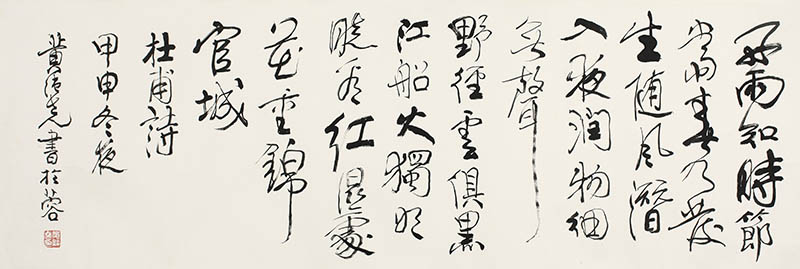 好雨知時節
當春乃發
生隨風潛
入夜潤物細
無聲
野徑雲俱黑
江船火獨明
曉看紅濕處
花重錦
官城
杜甫詩
甲申冬夜
黄 書於蓉